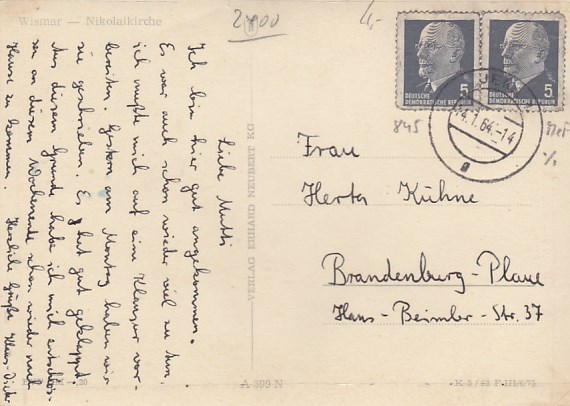 Wismar — Nikolaikirche
Liebe Mutti
Ich bin hier gut angekommen.
Es war auch schon wieder viel zu tun.
Ich mußte mich auf eine Klausur vor-
bereiten. Gestern am Montag haben wir
sie geschrieben. Es hat gut geklappt.
Aus diesem Grunde habe ich mich entschlos-
sen an diesem Wochenende schon wieder nach
Hause zu kommen. Herzliche Grüße Klaus-Dieter
VERLAG ERHARD NEUBERT KG
20
A 399 N
K 3/63
5
DEUTSCHE
DEMOKRATISCHE REPUBLIK
5
DEUTSCHE
DEMOKRATISCHE REPUBLIK
1.64.-14
845
4,-
Frau
Herta Kühne
Brandenburg-Plaue
Hans-Beimler-Str. 37